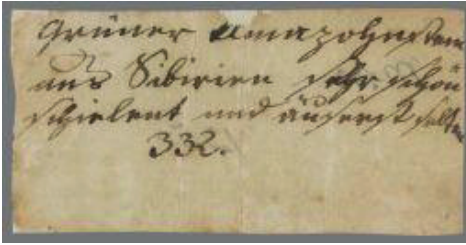 Grüner Amazohnstein
aus Sibirien sehr schön
schielent und äuserst selten
332.